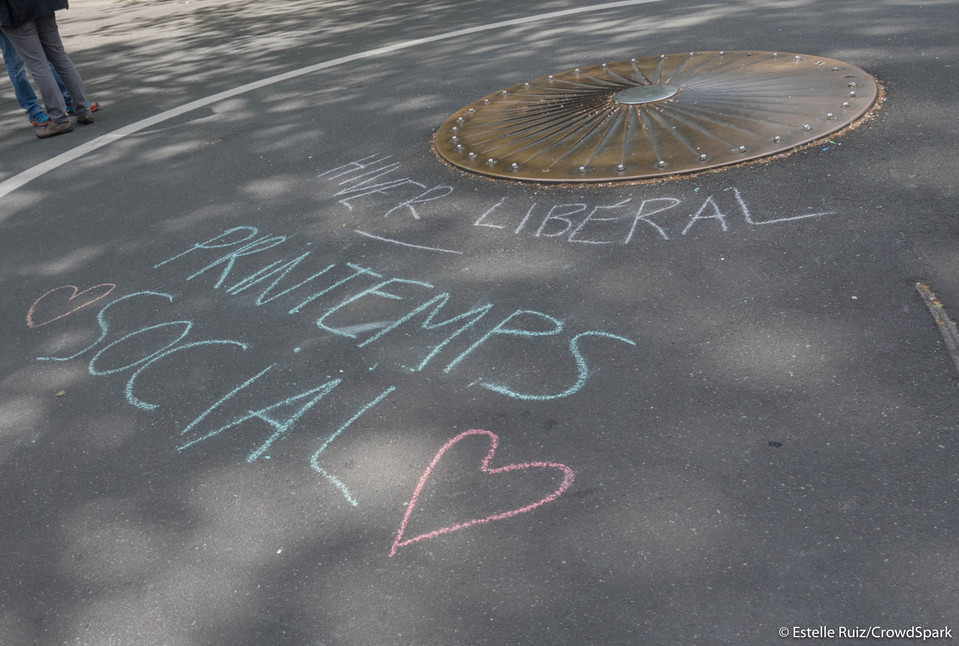 HIVER LIBÉRAL
—
PRINTEMPS
SOCIAL
© Estelle Ruiz/CrowdSpark